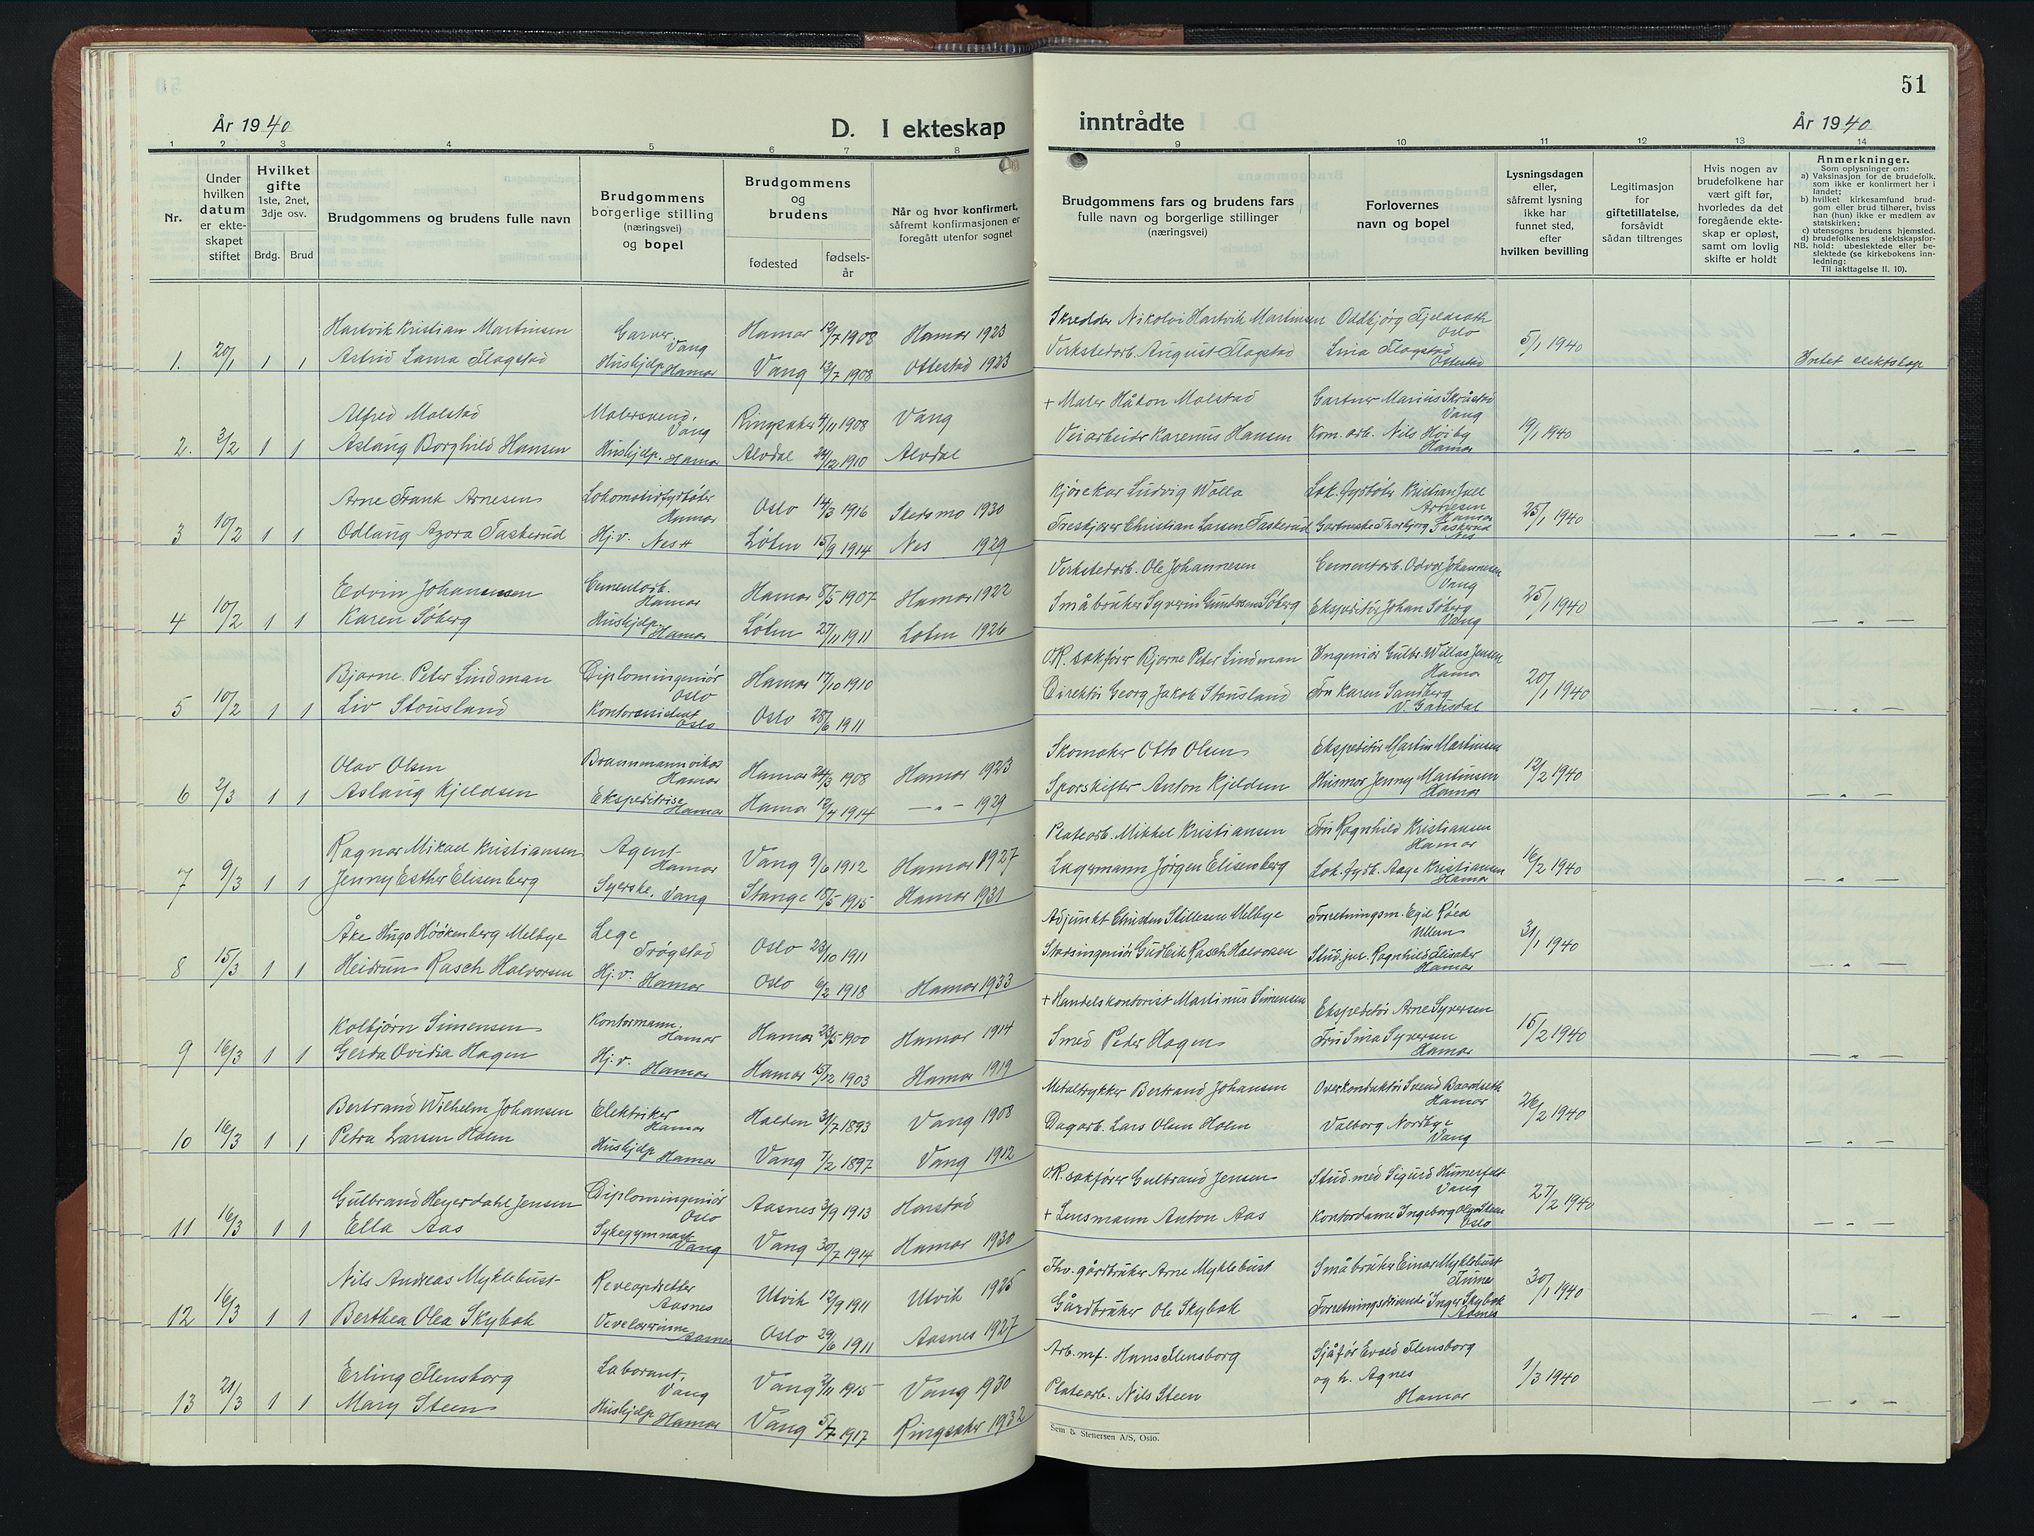 51
År 1940
D. I ekteskap
inntrådte
År 1940
1 2 3 4 5 6 7 8
9 10 11 12 13 14
Nr.
Under hvilken datum er ekteskapet stiftet
Hvilket gifte 1ste, 2net, 3dje osv.
Brdg. Brud
Brudgommens og brudens fulle navn
Brudgommens borgerlige stilling (næringsvei) og bopel
Brudgommens og brudens
fødested
fødselsår
Når og hvor konfirmert, såfremt konfirmasjonen er foregått utenfor sognet
Brudgommens fars og brudens fars fulle navn og borgerlige stillinger (næringsvei)
Forlovernes navn og bopel
Lysningsdagen eller, såfremt lysning ikke har funnet sted, efter hvilken bevilling
Legitimasjon for giftetillatelse, forsåvidt sådan tiltrenges
Hvis nogen av brudefolkene har vært gift før, hvorledes da det foregående ekteskap er opløst, samt om lovlig skifte er holdt
Anmerkninger.
Som oplysninger om:
a) Vaksinasjon for de brudefolk, som ikke er konfirmert her i landet;
b) hvilket kirkesamfund brudgom eller brud tilhører, hviss han (hun) ikke er medlem av statskirken;
c) utensogns brudens hjemsted.
d) brudefolkenes slektskapsforhold: ubeslektede eller beslektede (se kirkebokens innledning:
NB.
Til iakttagelse II. 10).
Hartvik Kristian Martinsen Vang Hamar 12/7 1908 Hamar 1923 Skredder Nikolai Hartvik Martinsen Oddbjørg Fjeldseth Oslo
1. 20/1 1 1 Astrid Laura Flagstad Hushjelp Hamar Vang 13/7 1908 Ottestad 1923 Verkstedarb. August Flagstad Lina Flagstad Ottestad 5/1 1940 Intet slektskap
Alfred Molstad Malersvend. Vang Ringsaker 4/11 1908 Vang + Maler Håkon Molstad Gartner Marius Skråstad Vang
2. 3/2 1 1 Aslaug Borghild Hansen Hushjelp. Hamar Alvdal 24/12 1910 Alvdal Veiarbeider Karenus Hansen Kom. arb. Nils Høiby Hamar 19/1 1940 — „ —
Arne Frank Arnesen Lokomotivfyrbøter Hamar Oslo 14/3 1916 1930 Kjørekar Ludvig Walla Lok. fyrbøter Kristian Arnesen Hamar
3 10/2 1 1 Odlaug Azora Taskerud Hj.v. Nes H Løten 15/9 1914 Nes 1929 Christian Larsen Taskerud Thorbjørg Taskerud Nes 25/1 1940 — „ —
Edvin Johannesen Cementarb. Hamar Hamar 8/5 1907 Hamar 1922 Verkstedarb. Ole Johannesen Cementarb. Odvar Johannesen Vang
4 10/2 1 1 Karen Søberg Hushjelp. Hamar Løten 27/11 1911 Løten 1926 Småbruker Syverin Gundersen Søberg Ekspeditør Johan Søberg Vang 25/1 1940 — „ —
Bjarne Peter Lindman Diplomingeniør Oslo Hamar 17/10 1910 O.R. sakfører Bjarne Peter Lindman Ingeniør Gulbr. Willas Jensen Hamar
5 10/2 1 1 Liv Stousland Kontorassistent Oslo Oslo 28/6 1911 Direktør Georg Jakob Stousland Fru Karen Sandberg V. Gausdal 20/1 1940 — „ —
Olav Olsen Brannmannvikar Hamar Hamar 24/3 1908 Hamar 1923 Skomaker Otto Olsen Ekspeditør Martin Martinsen
6 2/3 1 1 Aslaug Kjeldsen Ekspeditrise Hamar Hamar 12/4 1914 — „ — 1929 Sporskifter Anton Kjeldsen Husmor Jenny Martinsen Hamar 12/2 1940 — „ —
Ragnar Mikael Kristiansen Agent Hamar Vang 9/6 1912 Hamar 1927 Platearb. Mikkel Kristiansen Fru Ragnhild Kristiansen Hamar
7 9/3 1 1 Jenny Esther Elisenberg Syerske. Vang Stange 18/5 1915 Hamar 1931 Lagermann Jørgen Elisenberg Lok. fyrb. Aage Kristiansen Hamar 16/2 1940 — „ —
Åke Hugo Höökenberg Melbye Lege Trøgstad Oslo 23/10 1911 Adjunkt Christen Stillesen Melbye Forretningsm. Egil Røed Ullern
8 15/3 1 1 Heidrun Rasch Halvorsen Hj.v. Hamar Oslo 6/2 1918 Hamar 1933 Gudleik Rasch Halvorsen Stud. jur. Ragnhild Hamar 31/1 1940 — „ —
Kolbjørn Simensen Kontormann. Hamar Hamar 23/5 1900 Hamar 1914 + Handelskontorist Martinus Simensen Ekspeditør Arne Syversen
9 16/3 1 1 Gerda Ovidia Hagen Hj.v. Hamar Hamar 15/12 1903 Hamar 1919 Smed Peder Hagen Fru Sina Syversen Hamar 15/2 1940 — „ —
Bertrand Wilhelm Johansen Elektriker Hamar Halden 31/7 1893 Vang 1908 Metaltrykker Bertrand Johansen Overkonduktør Svend Baardseth Hamar
10 16/3 1 1 Petra Larsen Holm Hushjelp Hamar Vang 7/2 1897 Vang 1912 Dagarb. Lars Olsen Holm Valborg Nordbye Vang 26/2 1940 — „ —
Gulbrand Heyerdahl Jensen Diplomingeniør Oslo Aasnes 3/9 1913 Harstad O.R. sakfører Gulbrand Jensen Stud. med Sigurd Humerfelt Vang
11 16/3 1 1 Ella Aas Sykegymnast Vang Vang 30/7 1914 Hamar 1930 + Lensmann Anton Aas Kontordame Ingeborg Oslo 27/2 1940 — „ —
Nils Andreas Myklebust Reveopdretter Aasnes Utvik 12/9 1911 Utvik 1925 Fhv. gårdbruker Arne Myklebust Småbruker Einar Myklebust
12 16/3 1 1 Berthea Olea Skybak Aasnes Oslo 29/6 1911 Aasnes 1927 Gårdbruker Ole Skybak Forretningsdrivende Inger Skybak Aasnes 30/1 1940 — „ —
Erling Flensborg Laborant, Vang Vang 2/11 1915 Vang 1930 Arb. mf. Hans Flensborg Sjåfør Evald Flensborg
13 21/3 1 1 Mary Steen Hushjelp Hamar Vang 5/7 1917 Ringsaker 1932 Platearb. Nils Steen og h. Agnes Hamar 1/3 1940 — „ —
Sem & Stenersen A/S, Oslo.